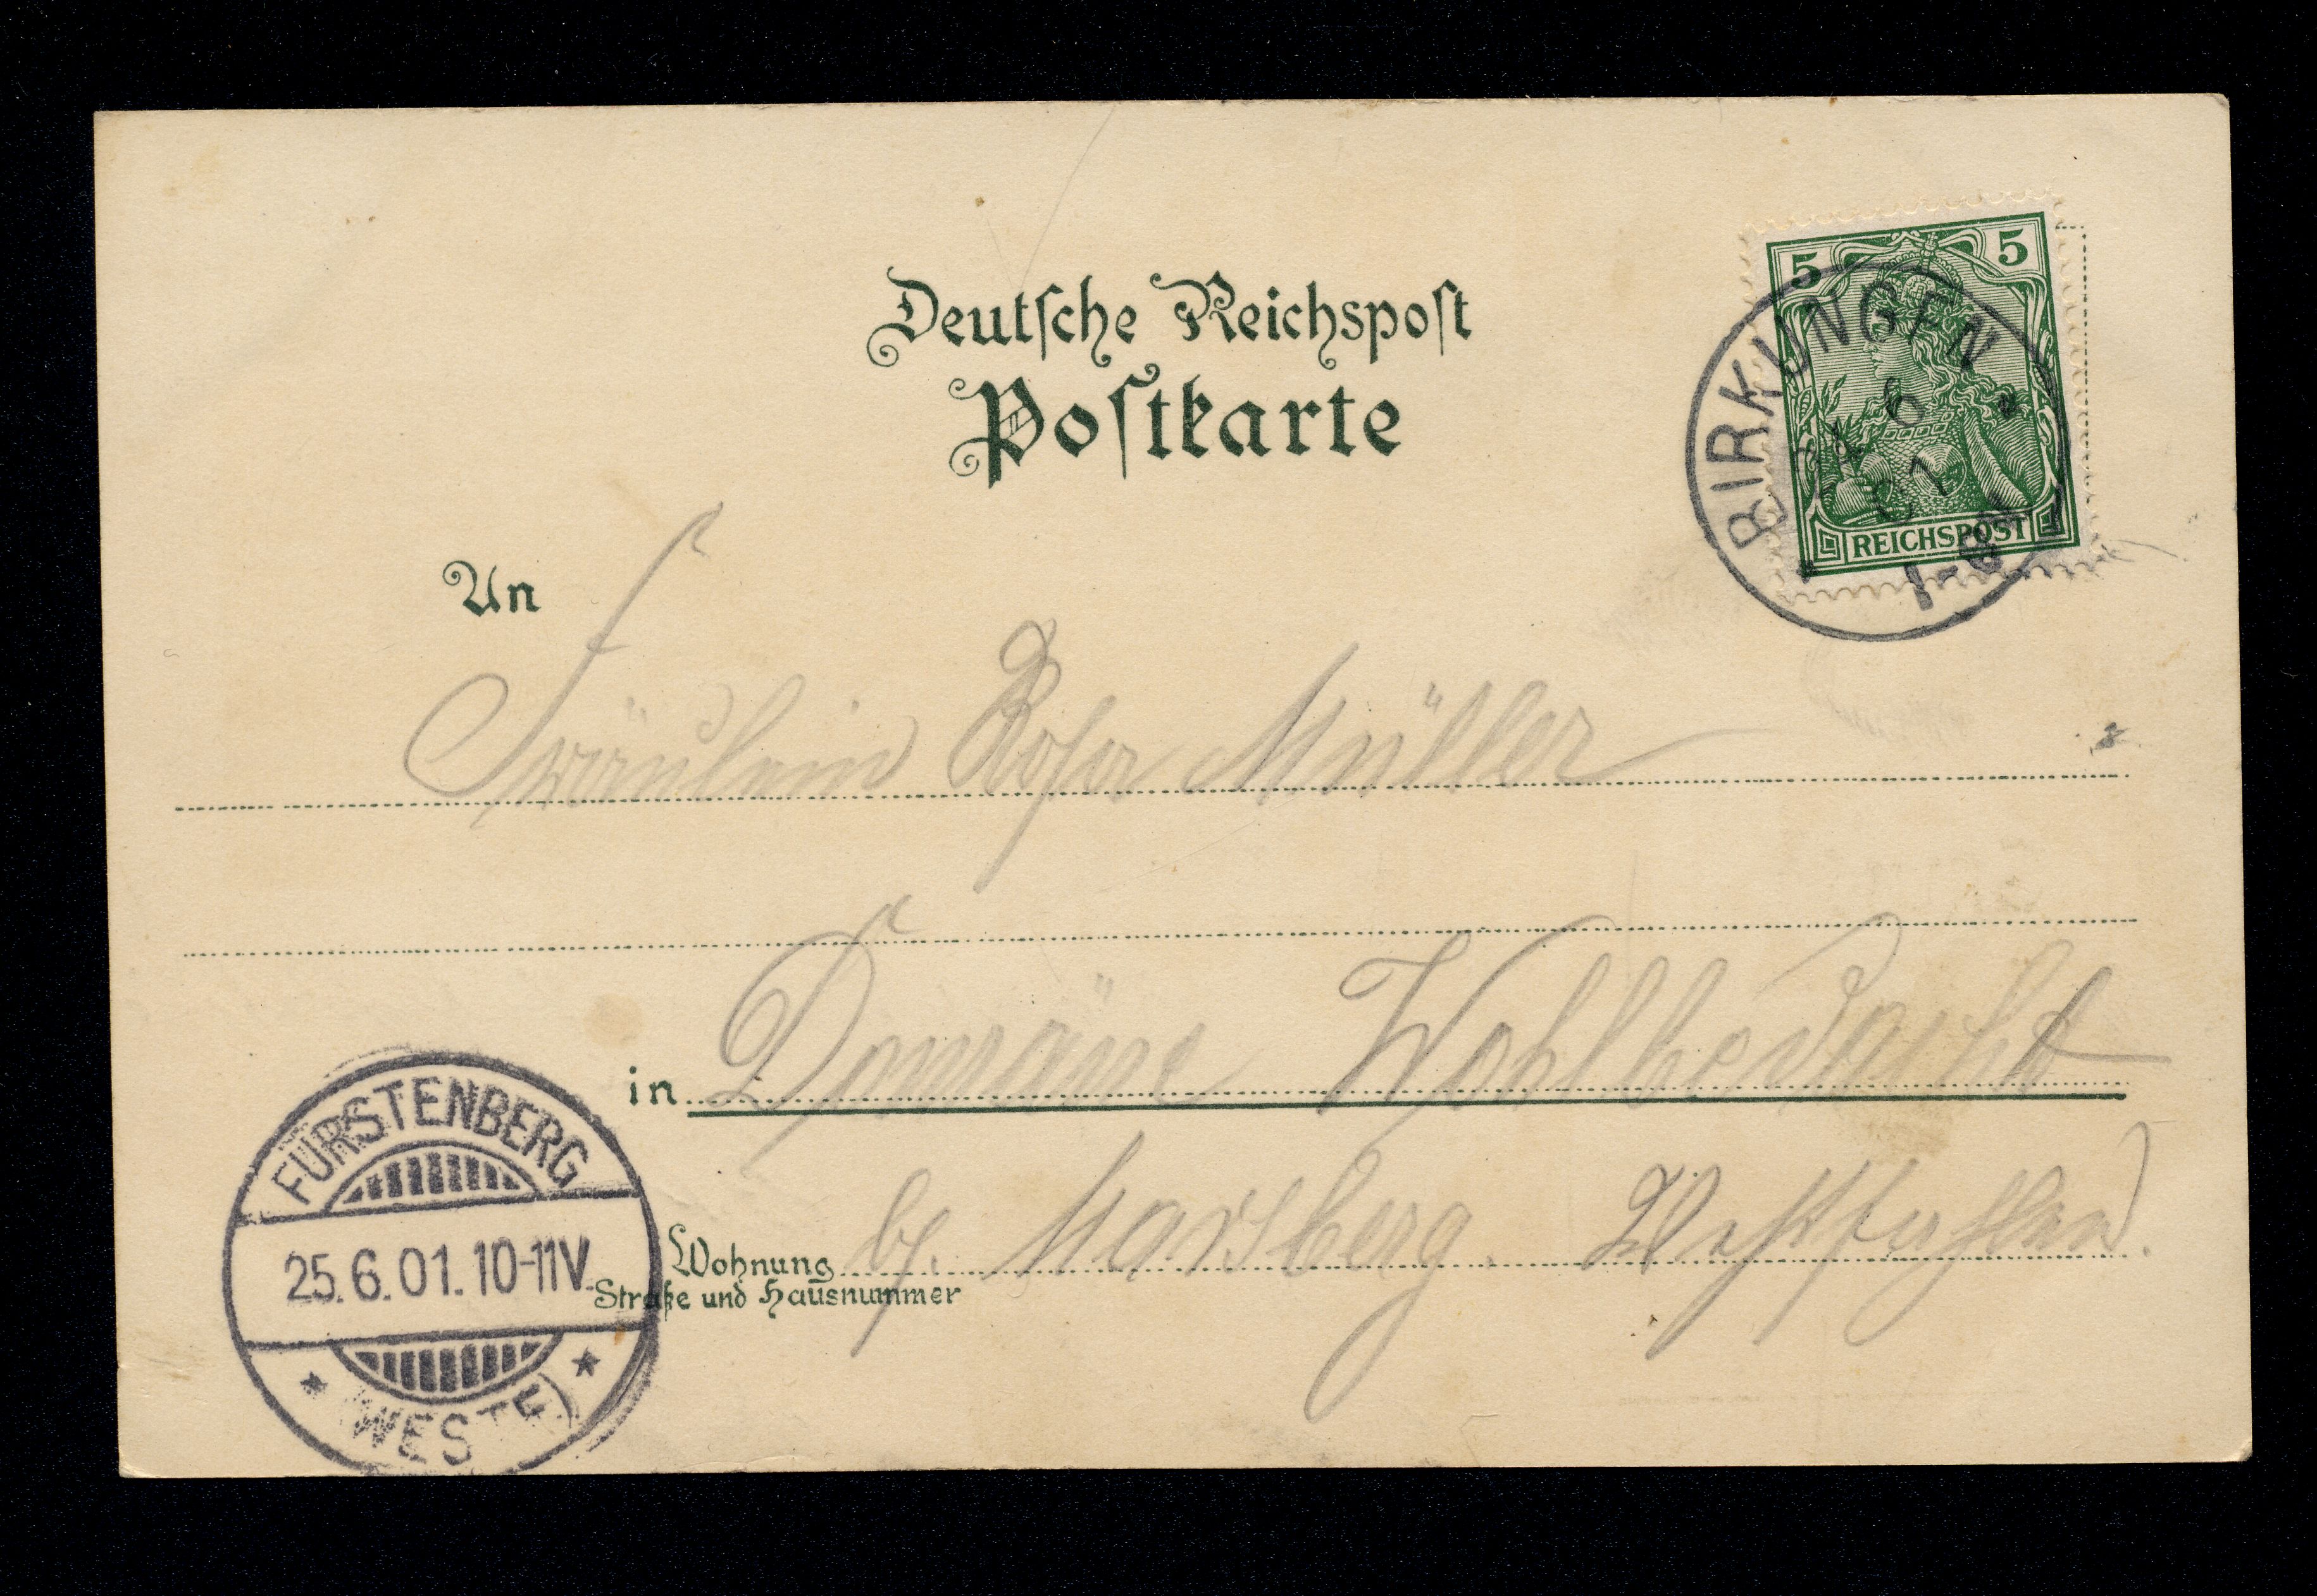 Deutſche Reichspoſt
Poſtkarte
5 5
REICHSPOST
BIRKUNGEN
6
01
An
Fräulein Roſa Müller
in Domäne Wohlbedacht
Wohnung b/. Marsberg. Weſtfahlen.
Straße und Hausnummer
FÜRSTENBERG
25.6.01.10-11V.
* (WESTF.) *